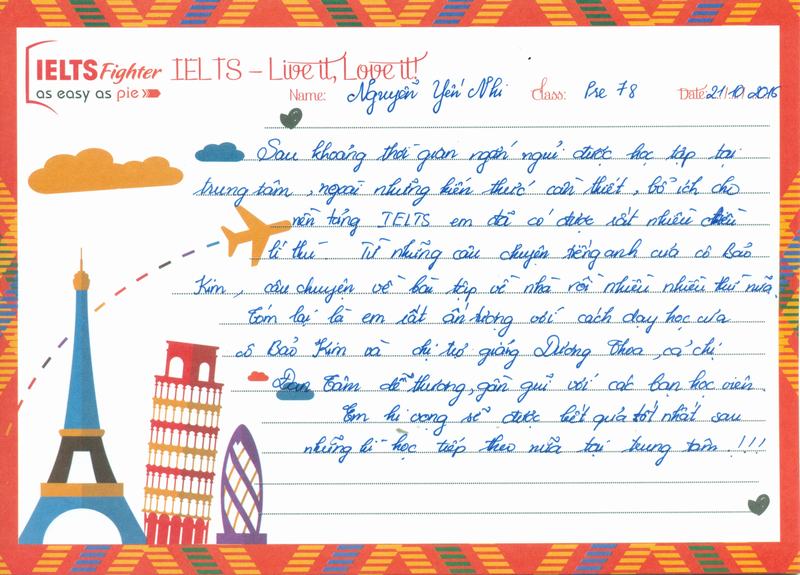 IELTS Fighter IELTS – Live it, Love it!
as easy as pie
Name: Nguyễn Yến Nhi Class: Pre 78 Date: 21/10/2016
Sau khoảng thời gian ngắn ngủi được học tập tại
trung tâm, ngoài những kiến thức cần thiết, bổ ích cho
nền tảng IELTS em đã có được rất nhiều điều
lí thú. Từ những câu chuyện tiếng anh của cô Bảo
Kim, câu chuyện về bài tập về nhà rồi nhiều nhiều thứ nữa.
Tóm lại là em rất ấn tượng với cách dạy học của
cô Bảo Kim và chị trợ giảng Dương Thoa, cả chị
Đan Tâm dễ thương, gần gũi với các bạn học viên.
Em hi vọng sẽ được kết quả tốt nhất sau
những kì học tiếp theo nữa tại trung tâm.!!!